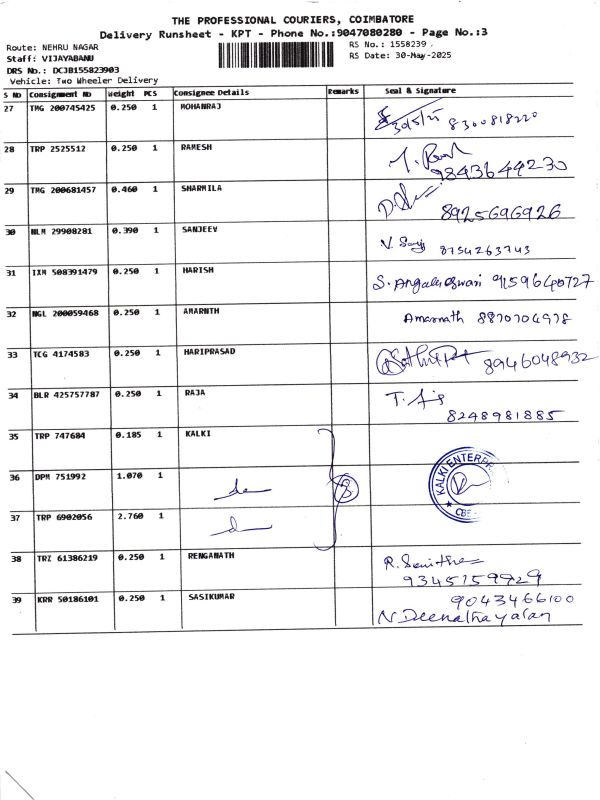 THE PROFESSIONAL COURIERS, COIMBATORE
Delivery Runsheet - KPT - Phone No.:9047080280 - Page No.:3
Route: NEHRU NAGAR
RS No.: 1558239
Staff: VIJAYABANU
RS Date: 30-May-2025
DRS No.: DCJB155823903
Vehicle: Two Wheeler Delivery
S No Consignment No Weight PCS Consignee Details Remarks Seal & Signature
27 TMG 200745425 0.250 1 MOHANRAJ
30/5/25 8300818220
28 TRP 2525512 0.250 1 RAMESH
9843649230
29 TMG 200681457 0.460 1 SHARMILA
8925696926
30 NLM 29908281 0.390 1 SANJEEV
8754263743
31 IXM 508391479 0.250 1 HARISH
S. Angaleswari 9159640727
32 NGL 200059468 0.250 1 AMARNTH
Amarnath 8870704978
33 TCG 4174583 0.250 1 HARIPRASAD
8946048932
34 BLR 425757787 0.250 1 RAJA
8248981885
35 TRP 747684 0.185 1 KALKI
36 DPM 751992 1.070 1 3
KALKI ENTERPR
CBE
37 TRP 6902056 2.760 1
38 TRZ 61386219 0.250 1 RENGANATH
9345159929
39 KRR 50186101 0.250 1 SASIKUMAR
9043466100
N Deenathayalan